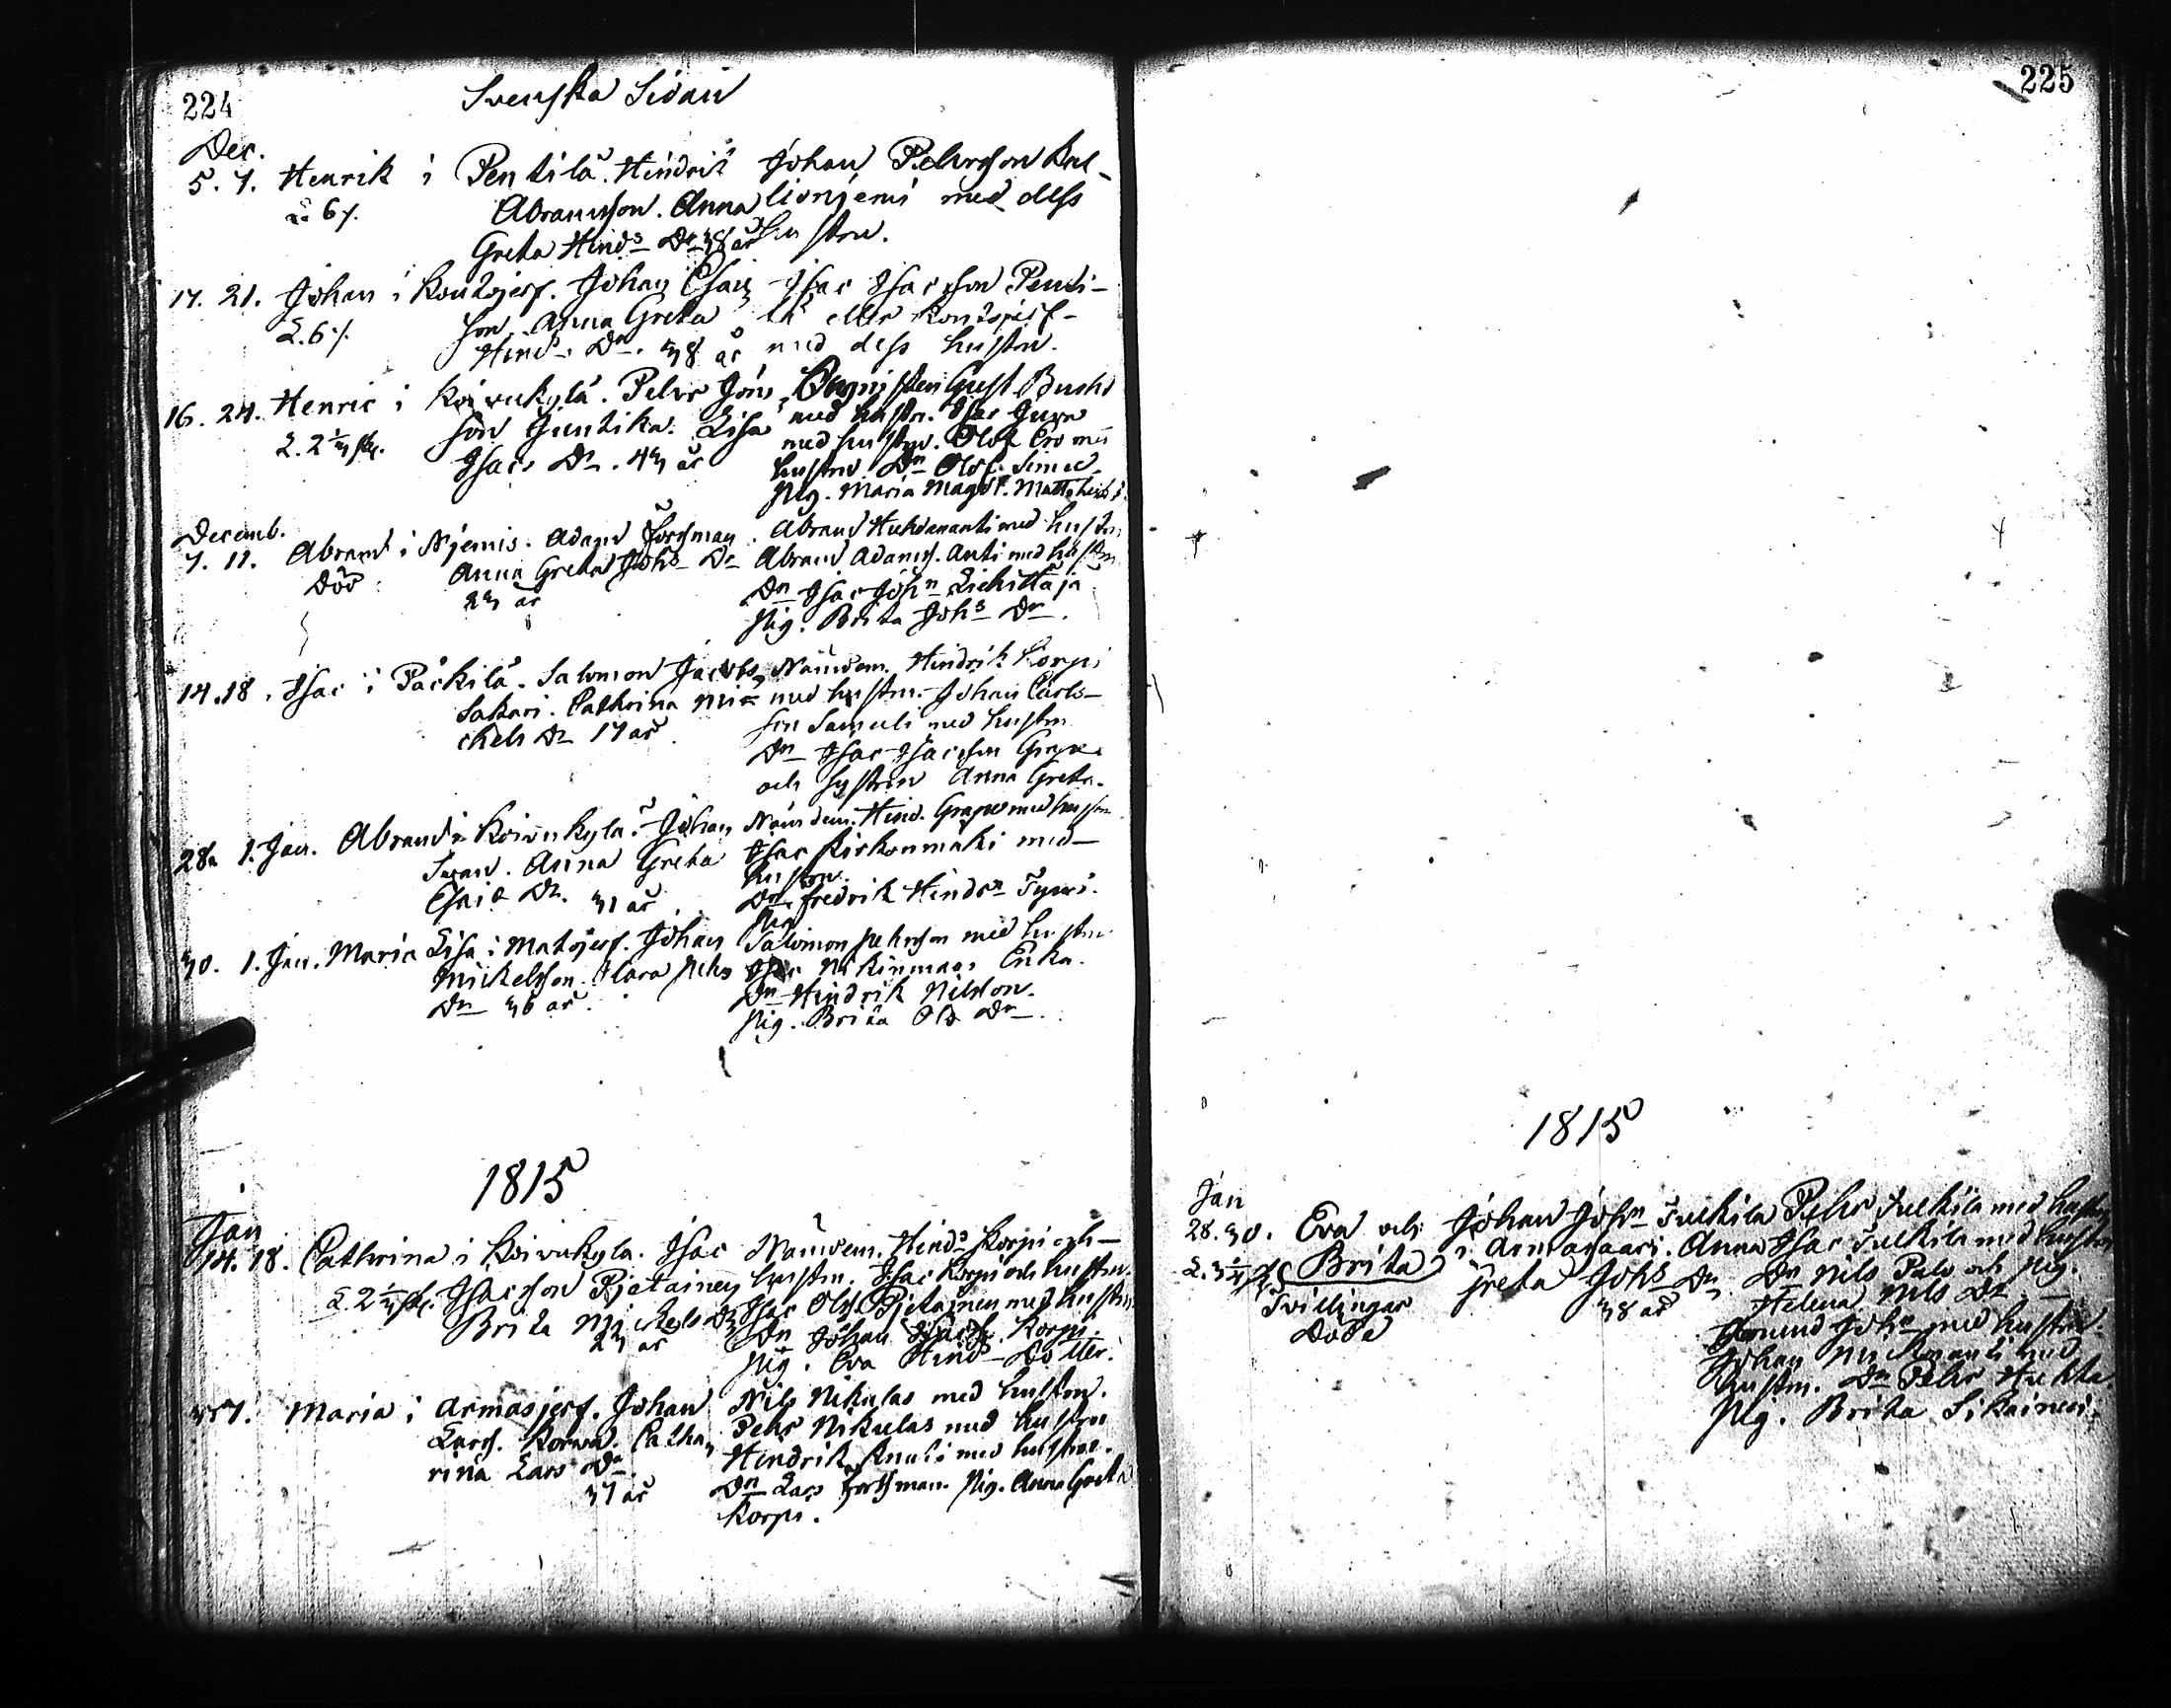 224
Svenska Sidan
Dec.
5. 7. Henrik i Pentilä. Hindrik Johan Pehrsson Kal-
L. 6 /. Abramsson. Anna lionjemi med dess
Greta Hinds Dr 38 år hustru.
17. 21. Johan i Kontojerf. Johan Esai- Isac Isacsson Penti-
L. 6 /. son. Anna Greta lä eller Kontojerf-
Hinds. Dr. 38 år med dess hustru.
16. 24. Henric i Koivukylä. Pehr Jöns- Gust
L. 2 son Juntika. Lisa med hustru. Isac
Isacs Dr. 43 år med hustru. Olof Ero med
hustru. Dn Olof
Pig. Maria Magdl. Matts
Decemb.
7. 11. Abram i Njemis. Adam Forssman. Abram med hustru
Död Anna Greta Johs Dr Abram Adamss. Anti med hustru
23 år Dn Isac John Liehittäjä
Pig. Brita Johs Dr.
14. 18. Isac i Päckilä. Salomon Jacobs. Nämdem. Hindrik Korpi
Sakari. Cathrina Mi- med hustru. Johan Carls-
chels Dr 17 år son Samuels med hustru
Dn Isac Isacsson Grape
och systern Anna Greta.
28. 1. Jan. Abram i Koivukylä. Johan Nämdem. Hind. Grape med hustru
Anna Greta Isac Kirkonmäki med-
Esaie Dr. 31 år hustru.
Dn. Fredrik Hindrn
Pig
30. 1. Jan. Maria Lisa i Matojerf. Johan Salomon Pehrsson med hustru
Mickelsson. Clara Pehrs Isac
Dr 36 år. Dn Hindrik Nilsson.
Pig. Brita Ols Dr.
1815
Jan
14. 18. Cathrina i Koivukyla. Isac Nämdem. Hinds Korpi och-
L. 2 Isacsson Pjetainen hustru. Isac Korpi och hustru.
Brita Mickels Dr Isac Olss. Pjetainen med hustru
23 år Dn Johan Isacss. Korpi
Pig. Eva Hinds Dotter.
7. Maria i Armasjerf. Johan Nils Nikulas med hustru.
Larss. Korva. Catha- Pehr Nikulas med hustru
rina Lars Dr. Hindrik Knuti med hustru.
37 år Dn Lars Forssman. Pig. Anna Greta
Korpi.
225
1815
Jan
28. 30. Eva och Johan John Tulkila Pehr Tulkila med hustru
L. 3 Brita i Armasaari. Anna Isac Tulkila med hustru
Tvillingar Greta Johs Dr Dn Nils Palo och Pig.
Döda 38 år Helena Nils Dr
Amund John med hustru.
Johan med
hustru. Dn Pehr Huhta
Pig. Brita Sikainen.